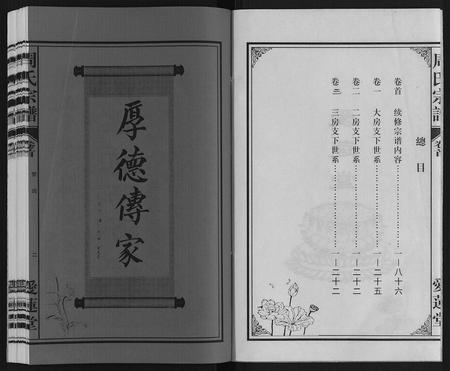 周氏宗譜
卷首
愛蓮堂
總目
卷首 续修宗谱内容……一—八十六
卷一 大房支下世系……一—二十五
卷二 二房支下世系……一—二十二
卷三 三房支下世系……一—二十二
厚德傳家
周氏宗譜
卷首
二
愛蓮堂